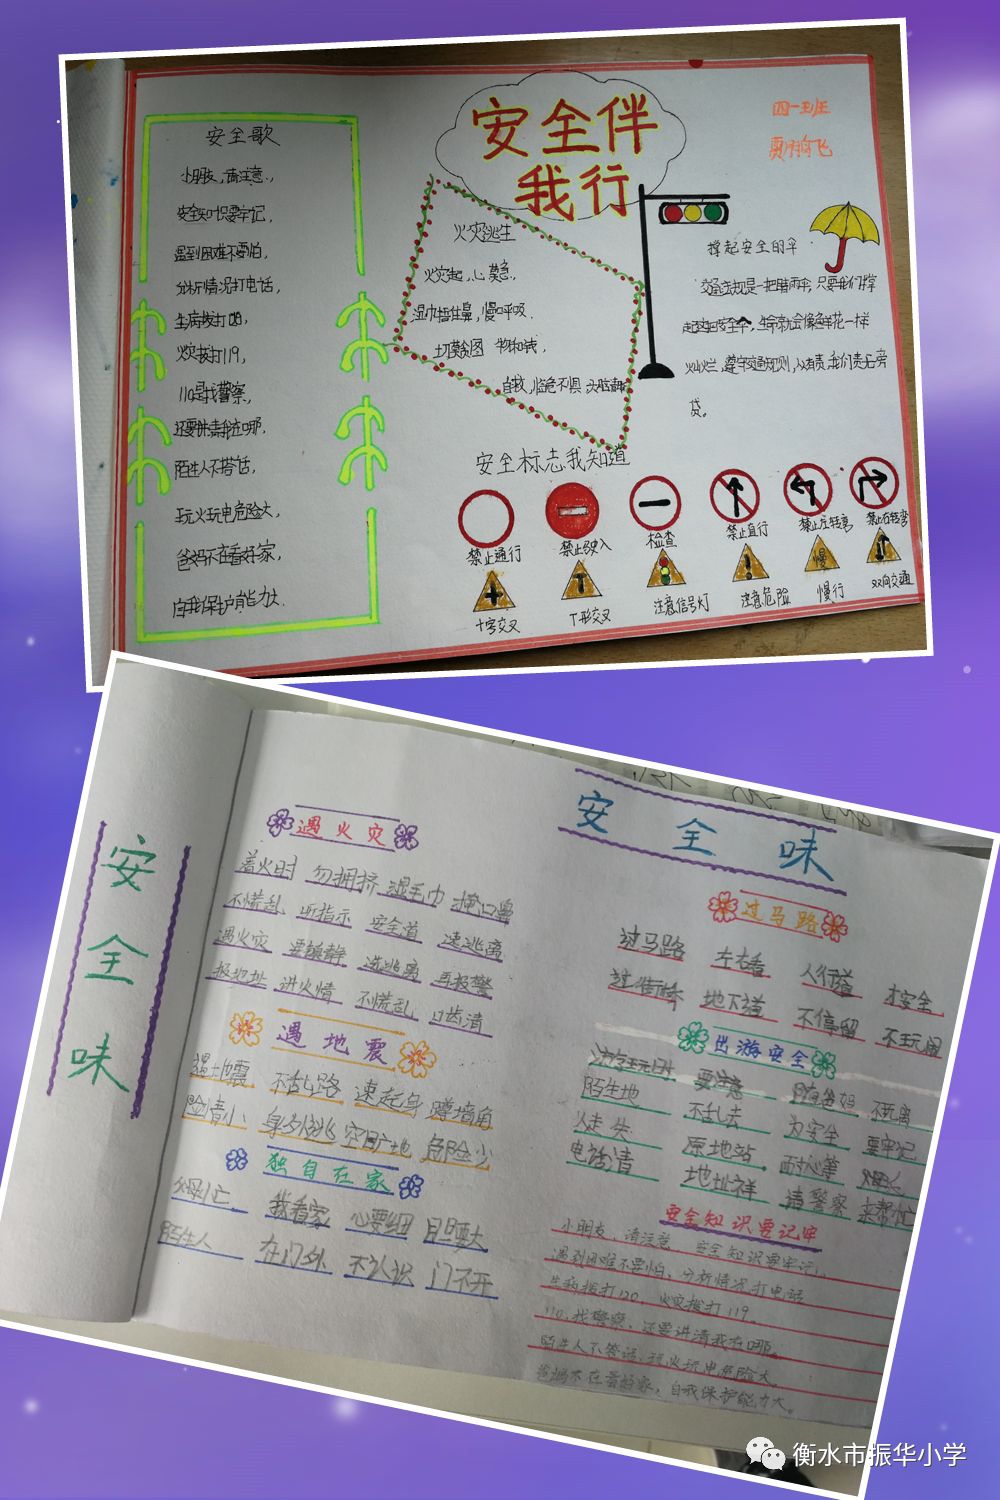 安全伴
我行
四一班
安全歌
小朋友,请注意,
安全知识要牢记,
遇到困难不要怕,
分析情况打电话,
生病拨打
火灾拨打119,
110是找警察,
还要讲清我在哪,
陌生人不答话,
玩火玩电危险大,
爸妈不在看好家,
自我保护能力大.
火灾逃生
火灾起,心莫急,
湿巾捂住鼻,慢呼吸.
切莫贪图 物和钱,
自救,临危不惧
撑起安全的伞
交通法规是一把晴雨伞,只要我们撑
起这把安全伞,生命就会像鲜花一样
灿烂,遵守交通规则,人人有责,我们责无旁
贷。
安全标志我知道
禁止通行 禁止驶入 检查 禁止直行 禁止左转弯 禁止右转弯
慢
十字交叉 T形交叉 注意信号灯 注意危险 慢行 双向交通
安全味
遇火灾
着火时 勿拥挤 湿毛巾 掩口鼻
不慌乱 听指示 安全道 速逃离
遇火灾 要镇静 速逃离 再报警
报地址 讲火情 不慌乱 口齿清
遇地震
遇地震 不乱跑 速起身 蹲墙角
险情小 身外逃 空旷地 危险少
独自在家
父母忙 我看家 心要细 胆要大
陌生人 在门外 不认识 门不开
安全味
过马路
过马路 左右看 人行道 才安全
过街桥 地下道 不停留 不玩闹
出游安全
游玩时 要注意 随爸妈 不玩离
陌生地 不乱去 为安全 要牢记
人走失 原地站 耐心等
电话清 地址详 请警察 来帮忙
安全知识要记牢
小朋友,请注意 安全知识要牢记,
遇到困难不要怕,分析情况打电话
生病拨打120,火灾拨打119。
110,找警察,还要讲清我在哪。
陌生人不答话,玩火玩电危险大。
爸妈不在看好家,自我保护能力大。
衡水市振华小学